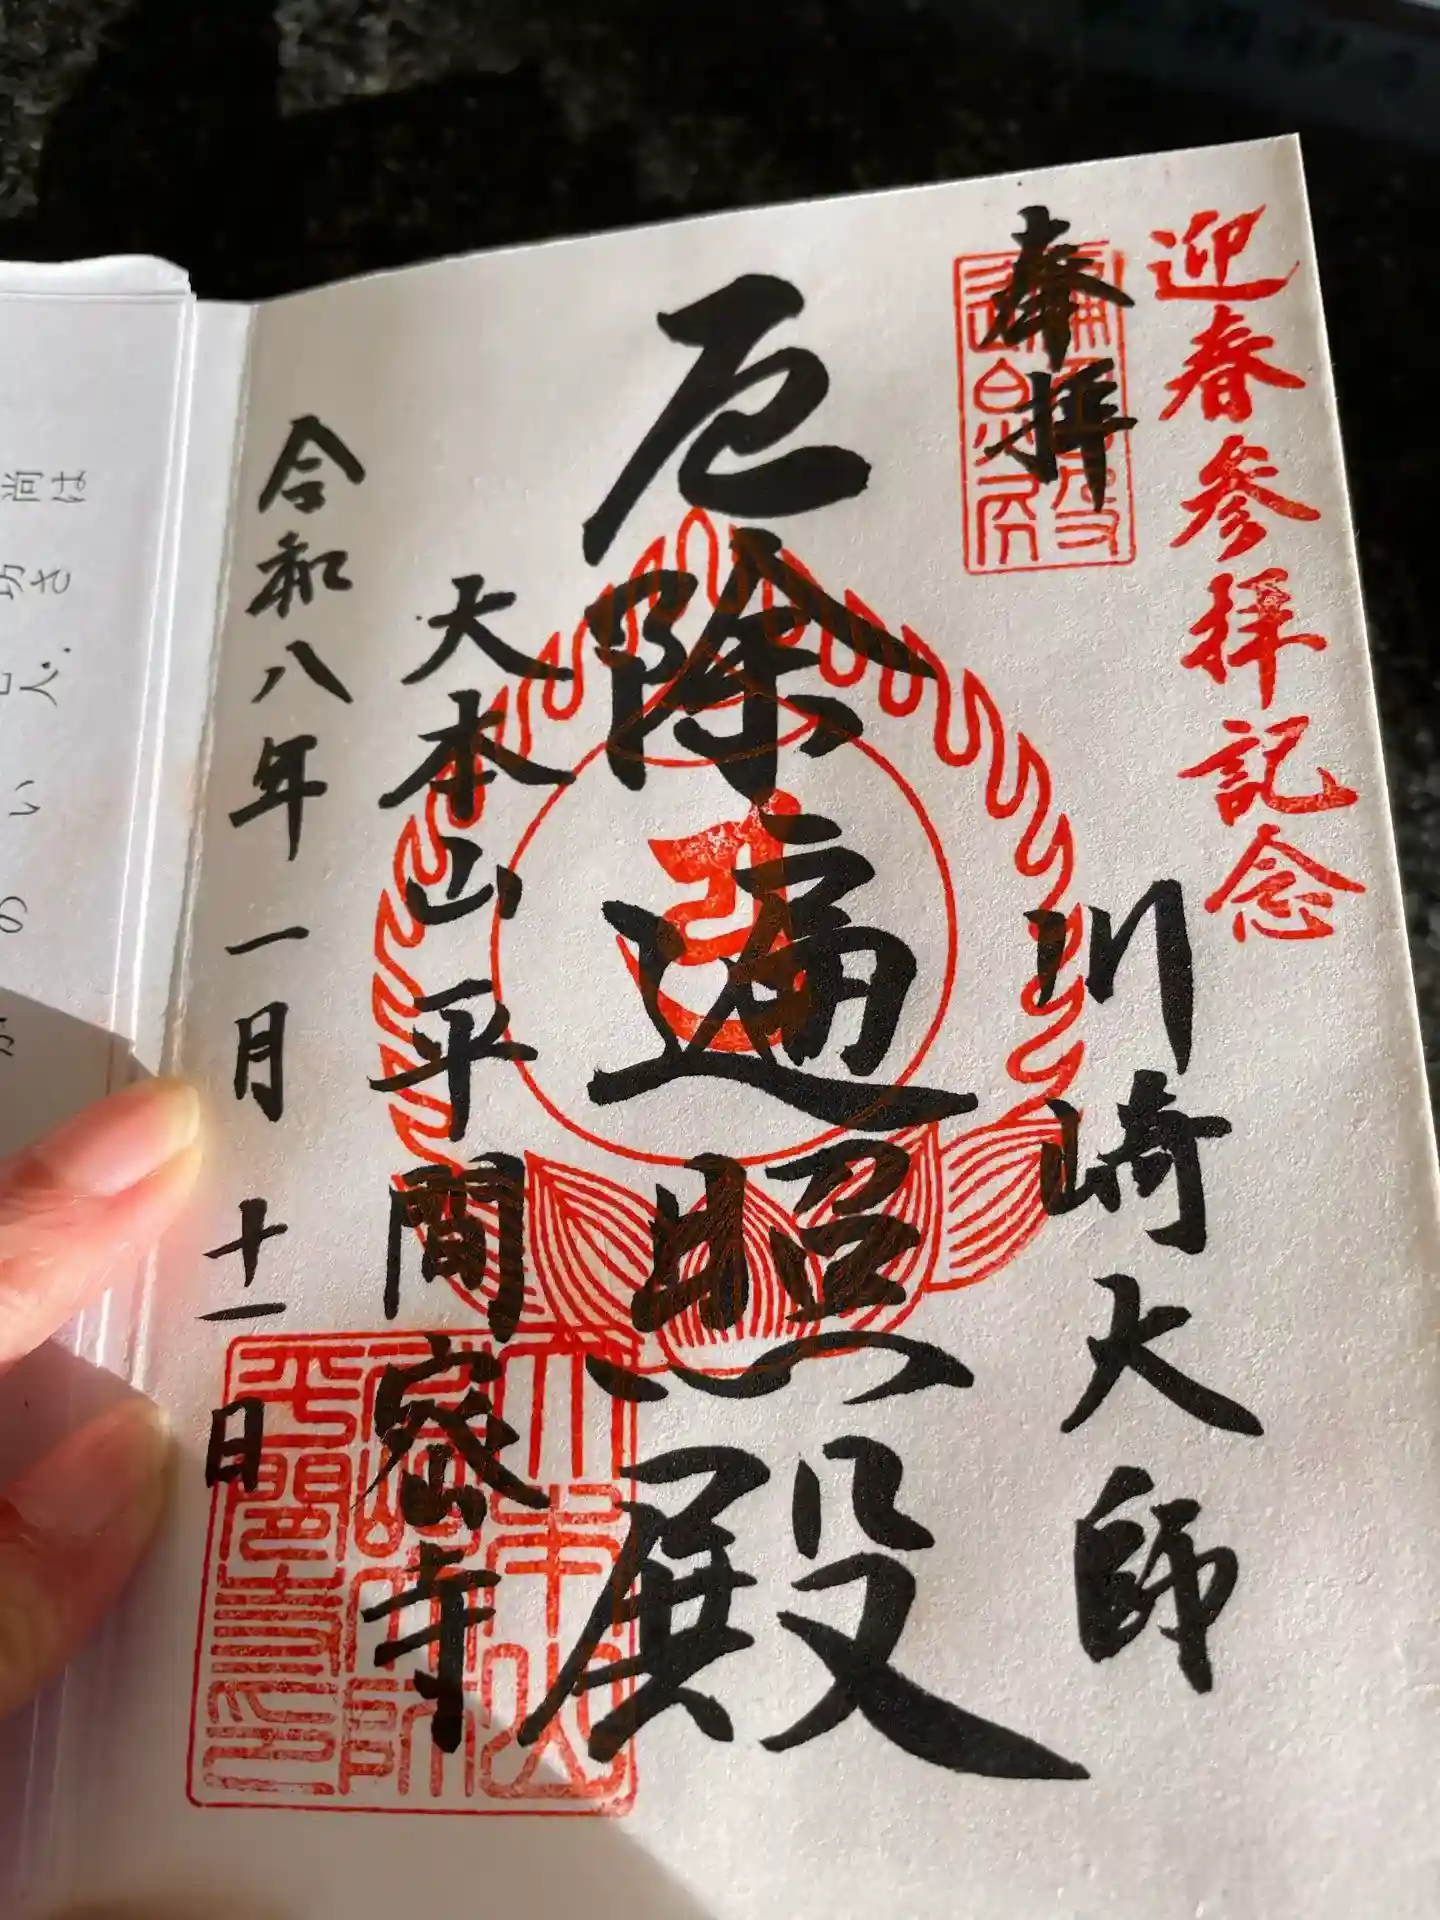 迎春参拝記念
奉拝
川崎大師
厄除遍照殿
大本山平間寺
密
令和八年一月十一日
尚は
切さ
人.
い
の